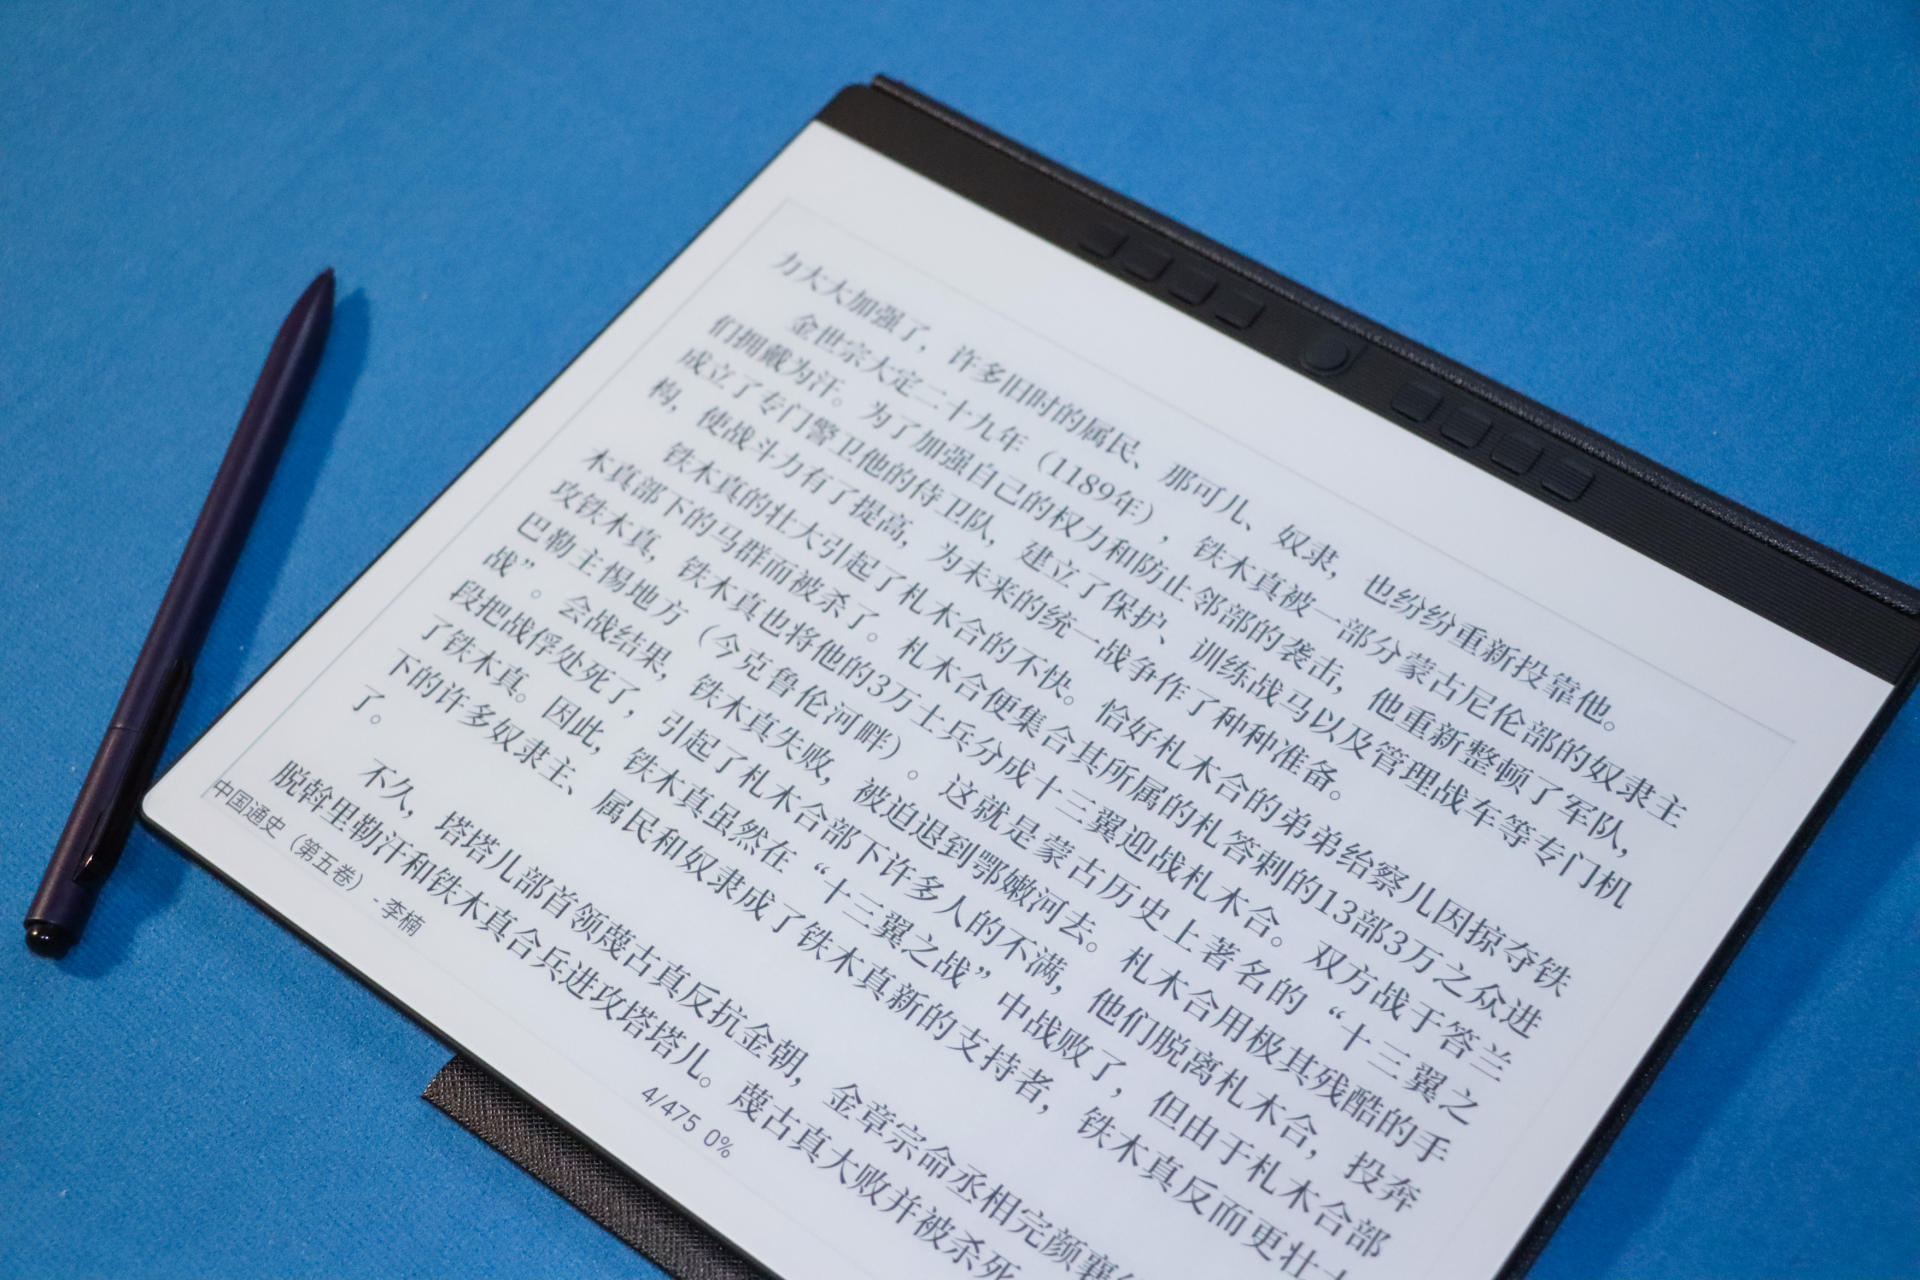 力大大加强了，许多旧时的属民、那可儿、奴隶，也纷纷重新投靠他。
金世宗大定二十九年（1189年），铁木真被一部分蒙古尼伦部的奴隶主
们拥戴为汗。为了加强自己的权力和防止邻部的袭击，他重新整顿了军队，
成立了专门警卫他的侍卫队，建立了保护、训练战马以及管理战车等专门机
构，使战斗力有了提高，为未来的统一战争作了种种准备。
铁木真的壮大引起了札木合的不快。恰好札木合的弟弟绐察儿因掠夺铁
木真部下的马群而被杀了。札木合便集合其所属的札答刺的13部3万之众进
攻铁木真，铁木真也将他的3万士兵分成十三翼迎战札木合。双方战于答兰
巴勒主惕地方（今克鲁伦河畔）。这就是蒙古历史上著名的“十三翼之
战”。会战结果，铁木真失败，被迫退到鄂嫩河去。札木合用极其残酷的手
段把战俘处死了，引起了札木合部下许多人的不满，他们脱离札木合，投奔
了铁木真。因此，铁木真虽然在“十三翼之战”中战败了，但由于札木合部
下的许多奴隶主、属民和奴隶成了铁木真新的支持者，铁木真反而更壮
了。
不久，塔塔儿部首领蔑古真反抗金朝，金章宗命丞相完颜襄
脱斡里勒汗和铁木真合兵进攻塔塔儿。蔑古真大败并被杀死
中国通史（第五卷） - 李楠
4/475 0%